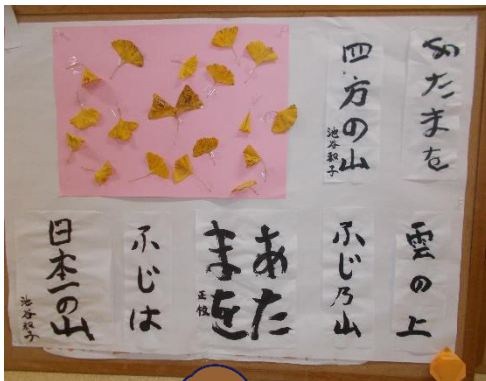 あたまを
四方の山
池谷和子
雲の上
ふじ乃山
あた
まを
ふじは
日本一の山
池谷和子